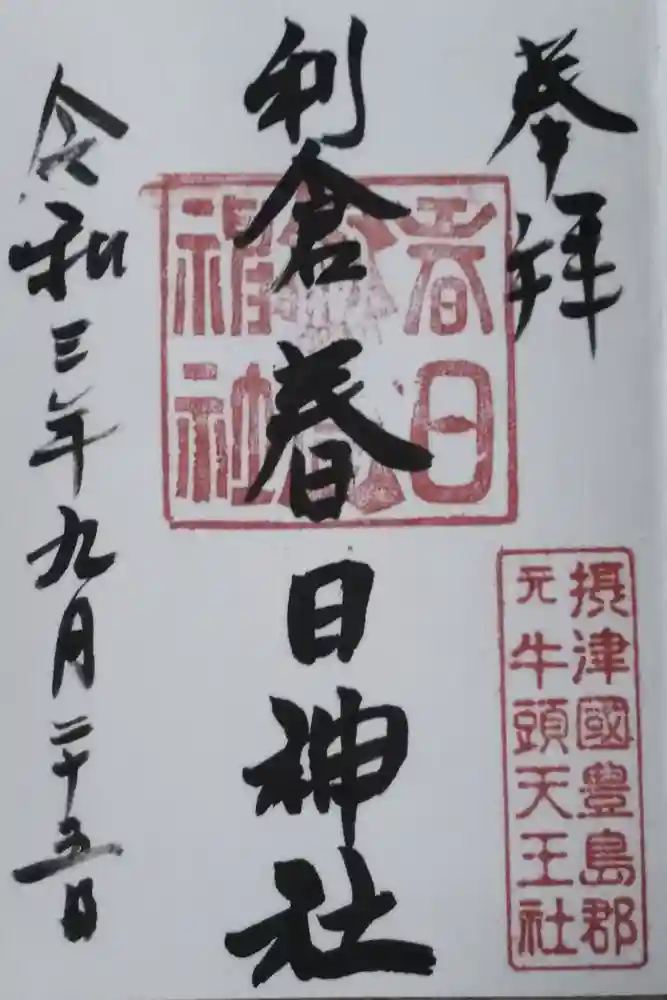 奉拝
摂津國豊島郡
元牛頭天王社
利倉春日神社
春日
神社
令和三年九月二十五日